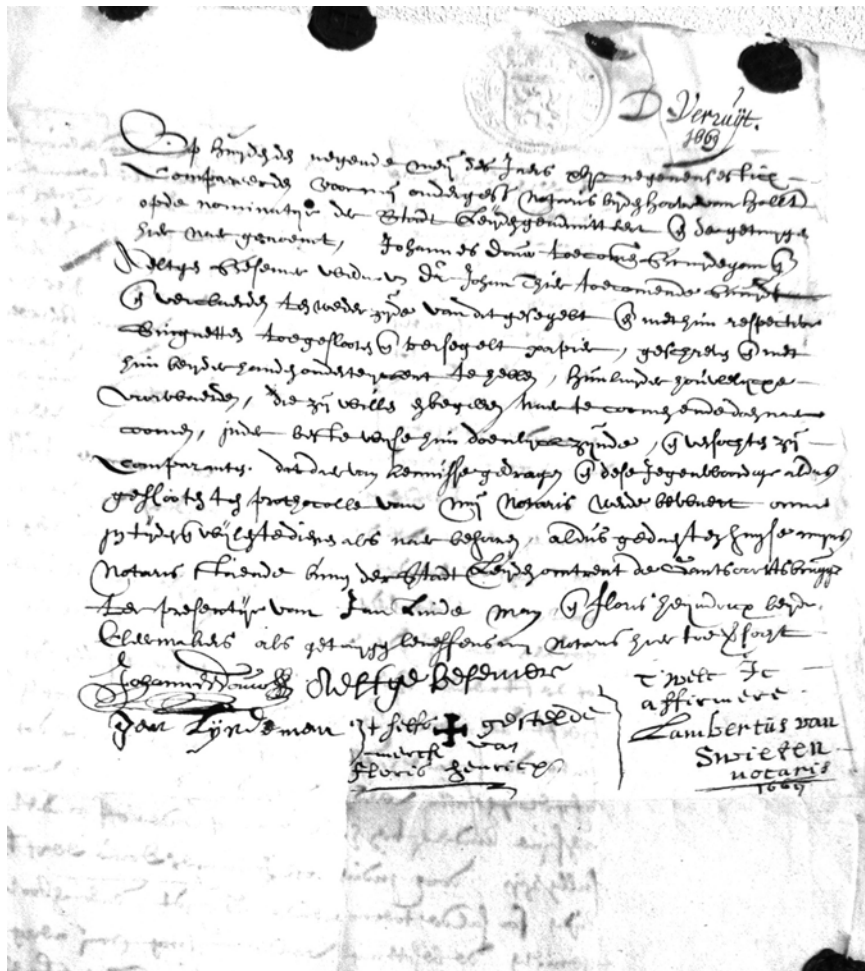 D Verruijt.
1669
Op huijden den negende meij des Jaers xvjc negenensestich
Compareerde voor mij ondergesz Notaris bijden hove van hollt
opde nominatije der Stadt Leijden geadmitteert en de getuijgen
hier nae genoemt, Johannes Douw toecomen Bruijdegom en
Neeltgen Besemer wede van Jan Thier toecomende bruijt
en verclaerden ten wederzijde van dit gesegelt en met hun respective
Singnetten toegeslooten en versegelt papier, geschreven en met
hun beijder handen onderteijckent te hebben, hunluijder houwelijxe
voorwaerden, die zij willen naer te coomen ende doen naer
coomen, inder bester wijse hun doenlijck zijnde, en versochten zij
Comparanten dat daer van kennisse gedragen en dese jegenwoordige aldus
geslooten ten prothocolle van mij Notaris werde bewaert omme
in tijden en wijlen te dienen als nae behoren, aldus gedaen ten huijse mijns
Notaris staende binnen der Stadt Leijden omtrent de
ter presentije van Jan Linde man en Floris heijndricx beijde
Cleermakers als getuijgen neffens mij Notaris hier toe versocht
Johannes Douw Neeltge besemers
Jan Lijndeman
It selfs gestelde
merck van
Floris henricx
t welc Ic
affirmere
Lambertus van
Swieten
notaris
1669